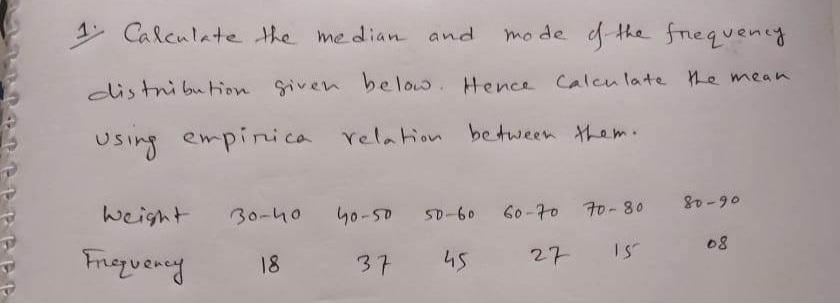 1. Calculate the median and mode of the frequency
distribution given below. Hence calculate the mean
using empirica relation between them.
Weight 30-40 40-50 50-60 60-70 70-80 80-90
Frequency 18 37 45 27 15 08